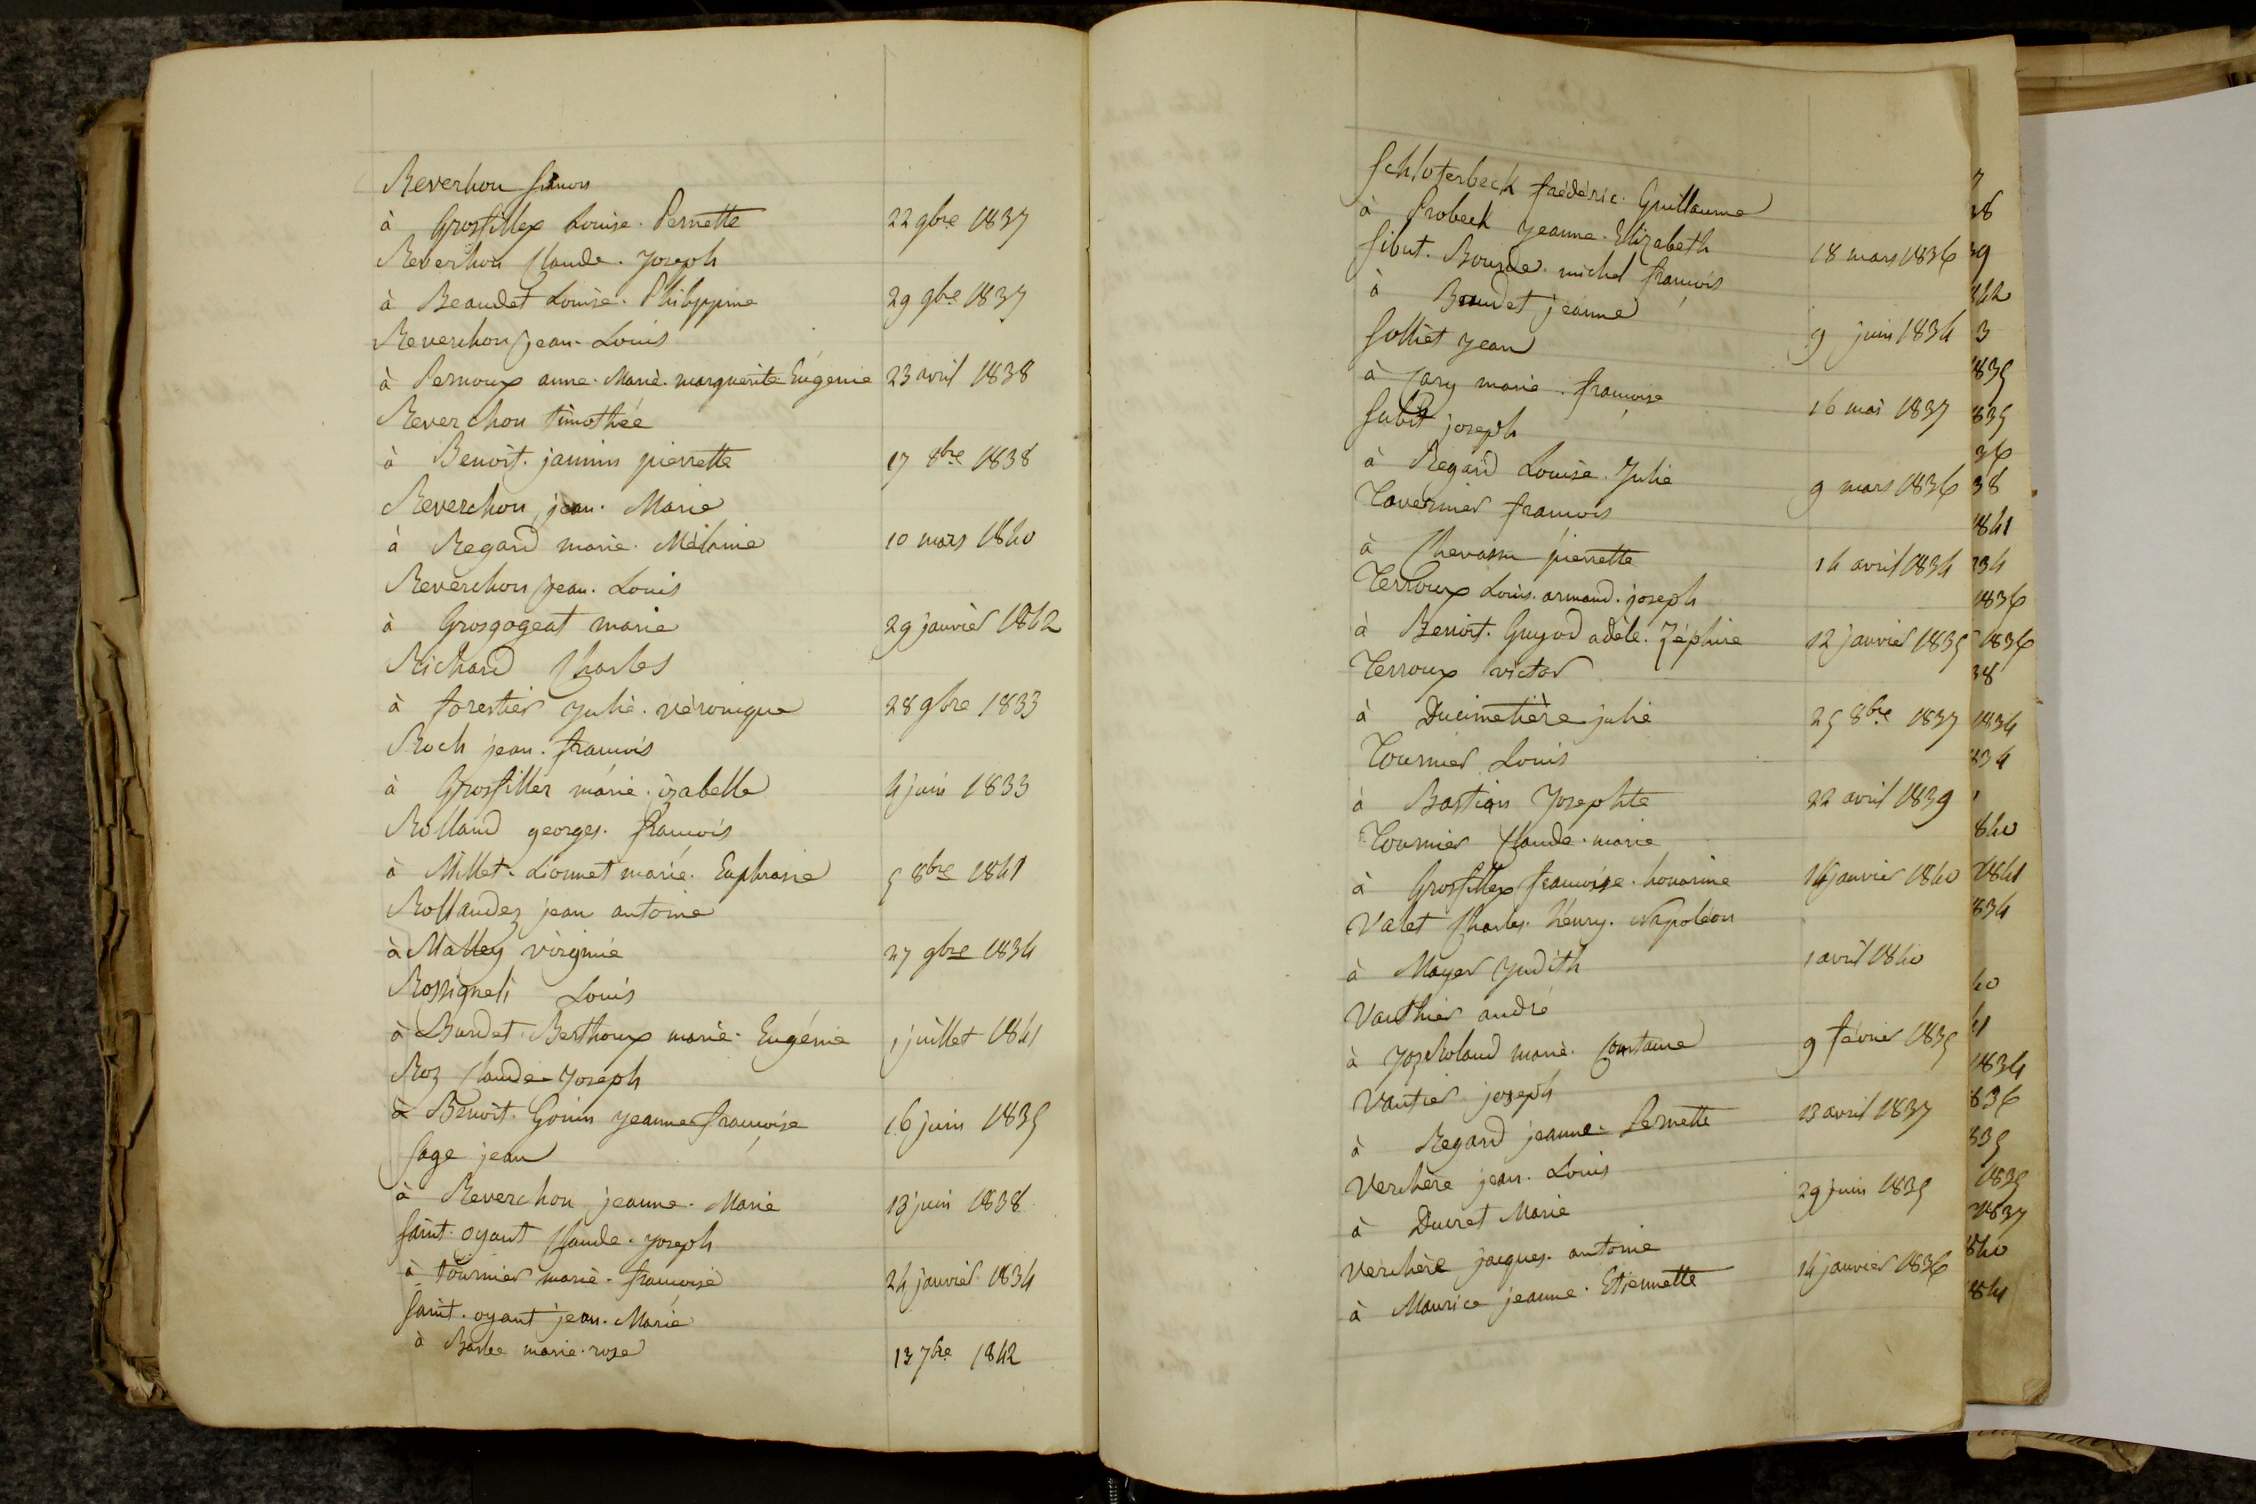 Reverchon simon
à Grosfillex Louise. Pernette 22 9bre 1837
Reverchon Claude. Joseph
à Beaudet Louise. Philippine 29 9bre 1837
Reverchon jean. Louis
à Pernoux anne. Marie. marguerite Eugénie 23 avril 1838
Reverchon timothée
à Benoit. jannin pierrette 17 8bre 1838
Reverchon jean. Marie
à Regard marie. Mélanie 10 mars 1840
Reverchon jean. Louis
à Grosgogeat marie 29 janvier 1842
Richard Charles
à forestier Julie. véronique 28 9bre 1833
Roch jean. francois
à Grosfiller marie. izabelle 4 juin 1833
Rolland georges. francois
à Millet. Lionnet marie. Euphrasie 5 8bre 1841
Rollandez jean antoine
à Malley virginie 27 9bre 1834
Rossigneli Louis
à Burdet. Berthoux marie. Eugénie 1 juillet 1841
Roz Claude. Joseph
à Benoit. Gonin Jeanne francoise 16 juin 1835
Sage jean
à Reverchon jeanne. Marie 13 juin 1838
Saint. oyant Claude. Joseph
à tournier marie. francoise 24 janvier 1834
Saint. oyant jean. Marie
à Barbe marie. rose 13 7bre 1842
Schloterbeck frédéric. Guillaume
à Probeck Jeanne. Elizabeth 18 mars 1836
Sibut. Bourde. michel francois
à Baudet jeanne 9 juin 1834
Solliet Jean
à Cary marie. francoise 16 mai 1837
Subit joseph
à Regard Louise. Julie 9 mars 1836
Tavernier francois
à Chevassu pierrette 14 avril 1834
Terroux Louis. armand. joseph
à Benoit. Guyod adèle. Zéphire 12 janvier 1835
Terroux victor
à Ducimetière julie 25 8bre 1837
Tournier Louis
à Bastian Josephte 22 avril 1839
Tournier Claude. marie
à Grosfillex francoise. honorine 14 janvier 1840
Valet Charles. henry. Napoléon
à Mayer Judith 1 avril 1840
Vauthier andré
à Joz Roland marie. Constance 9 février 1835
Vautier joseph
à Regard jeanne. Pernette 13 avril 1837
Verchère jean. Louis
à Ducret Marie 29 juin 1835
Verchère jacques. antoine
à Maurice jeanne. Etiennette 14 janvier 1836